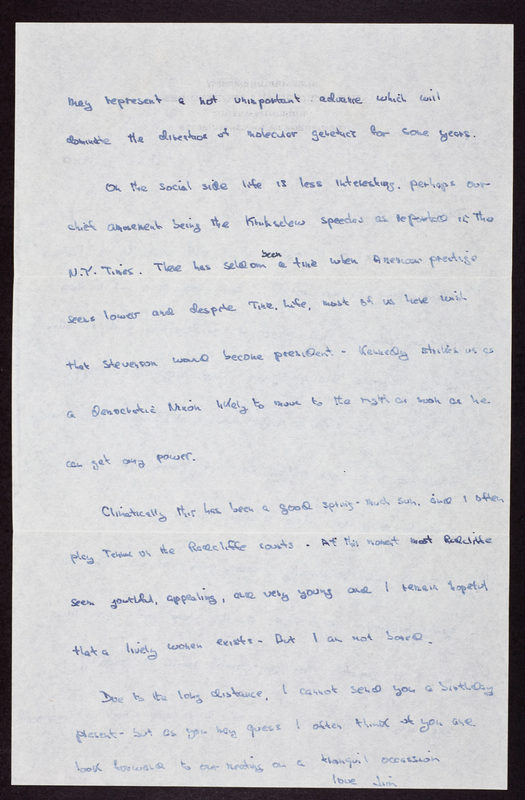 may represent a not unimportant advance which will
dominate the direction of molecular genetics for some years.
On the social side life is less interesting, perhaps our
chief amusement being the speeches as reported in The
N.Y. Times. There has seldom been a time when American prestige
seems lower and despite Time, Life, most of us here wish
that Stevenson would become president - Kennedy strikes us as
a Democratic Nixon likely to move to the right as soon as he
can get any power.
Climatically this has been a good spring - much sun. and I often
play Tennis on the Radcliffe courts. At this moment most Radcliffe
seem youthful, appealing, and very young and I remain hopeful
that a lively women exists - But I am not bored.
Due to the long distance, I cannot send you a birthday
present - but as you may guess I often think of you and
look forward to our meeting on a tranquil occassion
love Jim